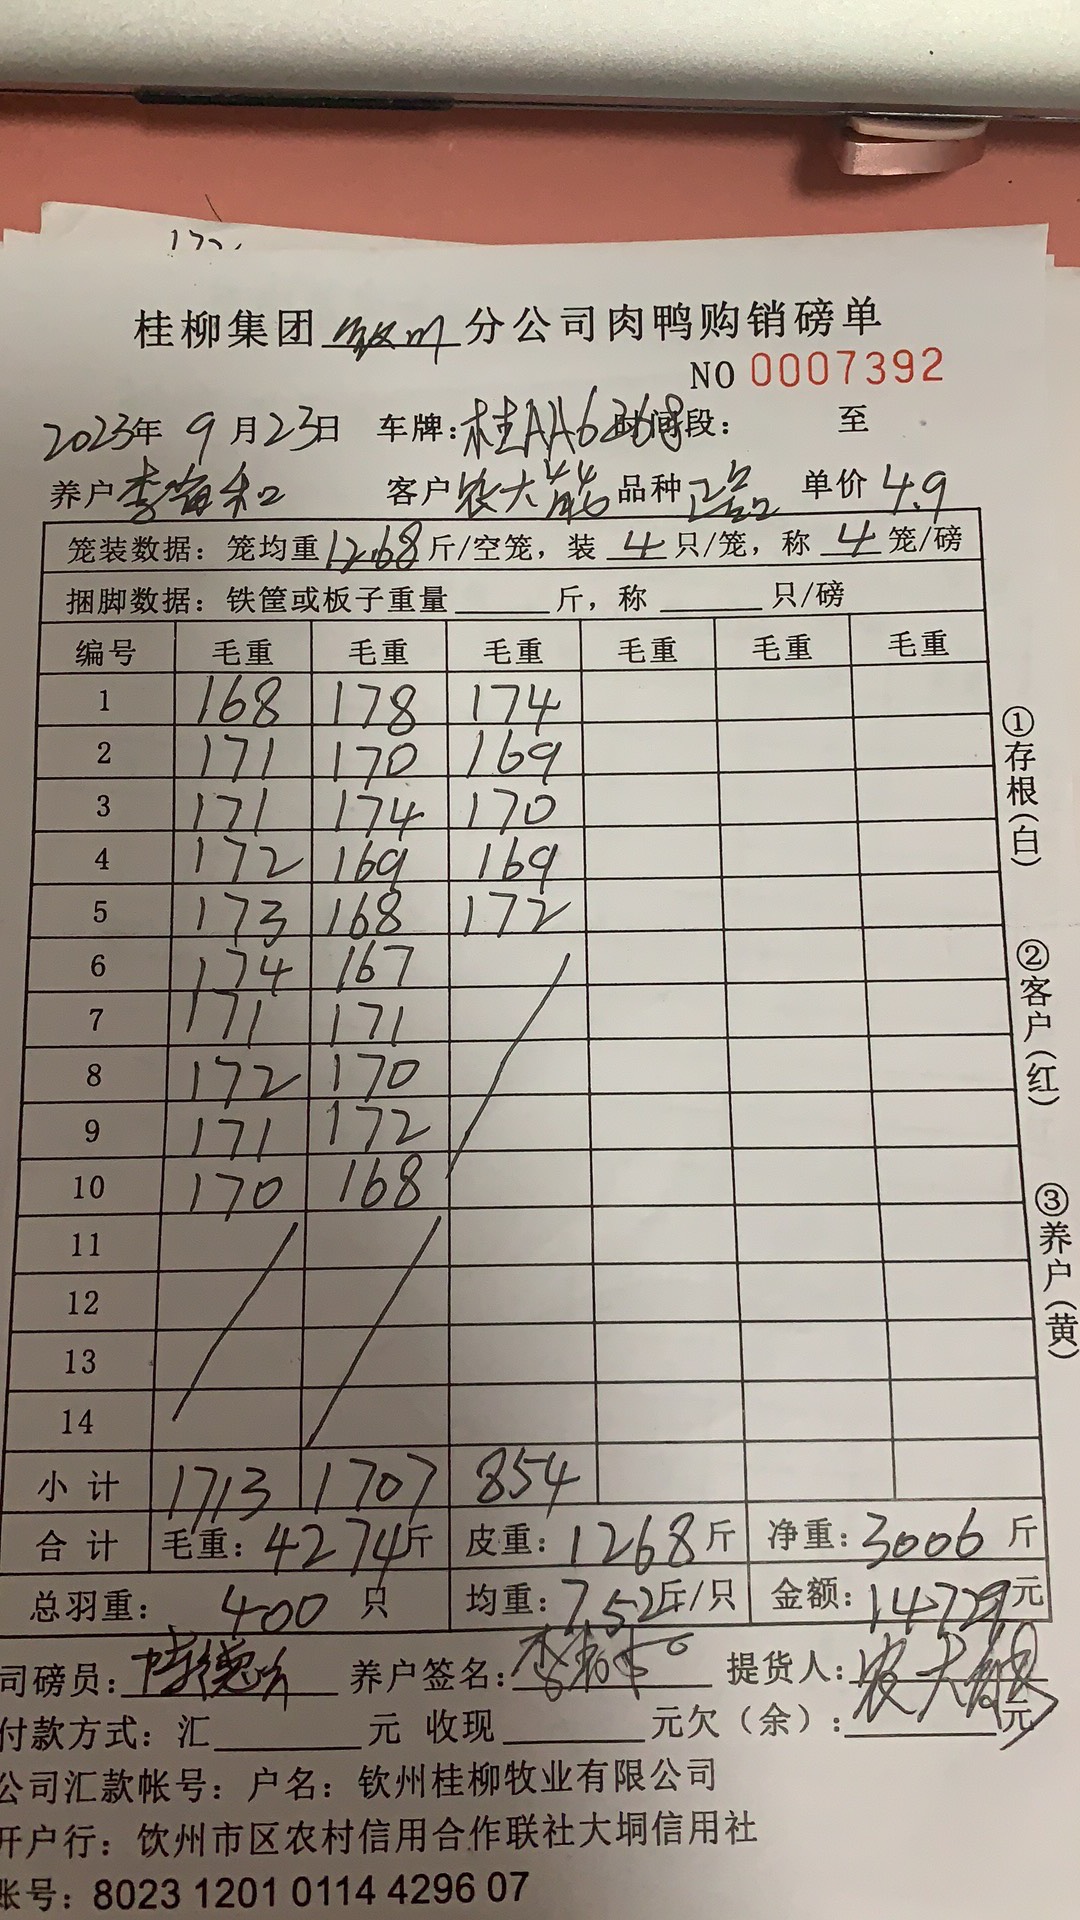 172
桂柳集团钦州分公司肉鸭购销磅单
NO 0007392
2023年 9月23日 车牌:桂AA6268 时间段: 至
养户 李海和 客户 农大 品种 正品 单价 4.9
笼装数据: 笼均重12.68斤/空笼, 装 4 只/笼, 称 4 笼/磅
捆脚数据: 铁筐或板子重量 斤, 称 只/磅
编号 毛重 毛重 毛重 毛重 毛重 毛重
1 168 178 174
2 171 170 169
3 171 174 170
4 172 169 169
5 173 168 172
6 174 167
7 171 171
8 172 170
9 171 172
10 170 168
11
12
13
14
小计 1713 1707 854
合计 毛重: 4274斤 皮重: 1268斤 净重: 3006斤
总羽重: 400 只 均重: 7.52斤/只 金额: 14729元
司磅员: 养户签名: 李 提货人: 农大
付款方式: 汇 元 收现 元欠(余): 元
公司汇款帐号: 户名: 钦州桂柳牧业有限公司
开户行: 钦州市区农村信用合作联社大垌信用社
账号: 8023 1201 0114 4296 07
①存根(白)
②客户(红)
③养户(黄)